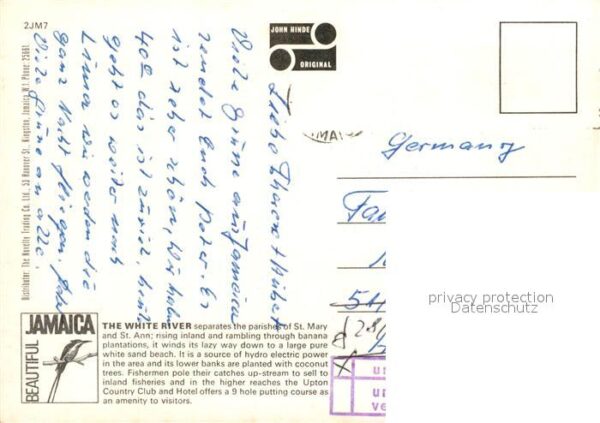 2JM7
JOHN HINDE
ORIGINAL
Distributor: The Novelty Trading Co. Ltd., 53 Hanover St., Kingston, Jamaica W.I. Phone 25661.
Viele Grüße aus Jamaica
sendet Euch Peter. Es
ist sehr schön, wir haben
40° das ist zuviel, heute
geht es weiter nach
Lima wir werden die
ganze Nacht fliegen.
Viele Grüße an alle.
MA
Germany
Fa
privacy protection
Datenschutz
BEAUTIFUL
JAMAICA
THE WHITE RIVER separates the parishes of St. Mary
and St. Ann; rising inland and rambling through banana
plantations, it winds its lazy way down to a large pure
white sand beach. It is a source of hydro electric power
in the area and its lower banks are planted with coconut
trees. Fishermen pole their catches up-stream to sell to
inland fisheries and in the higher reaches the Upton
Country Club and Hotel offers a 9 hole putting course as
an amenity to visitors.
un
un
ve